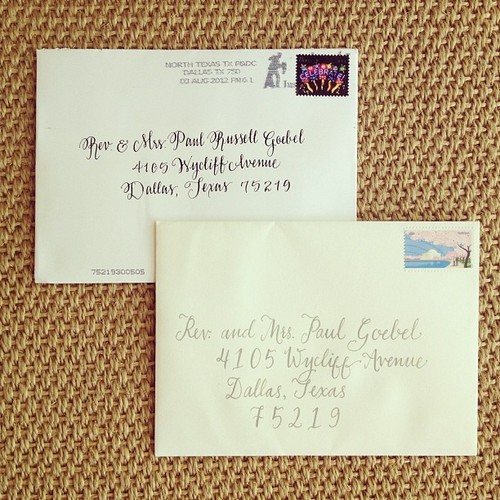 NORTH TEXAS TX P&DC
DALLAS TX 750
03 AUG 2012 PM 6 L
CELEBRATE!
Rev. & Mrs. Paul Russell Goebel
4105 Wycliff Avenue
Dallas, Texas 75219
75219300505
Rev. and Mrs. Paul Goebel
4105 Wycliff Avenue
Dallas, Texas
75219